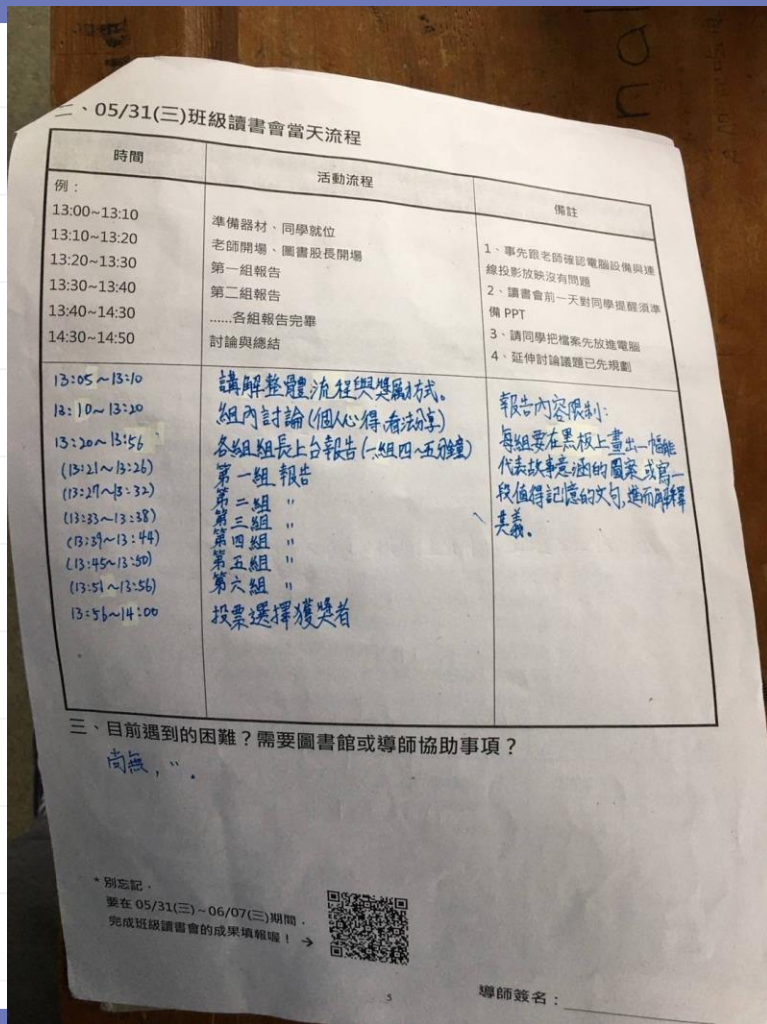 二、05/31(三)班級讀書會當天流程
時間
活動流程
備註
例：
13:00~13:10
13:10~13:20
13:20~13:30
13:30~13:40
13:40~14:30
14:30~14:50
準備器材、同學就位
老師開場、圖書股長開場
第一組報告
第二組報告
......各組報告完畢
討論與總結
1、事先跟老師確認電腦設備與連
線投影放映沒有問題
2、讀書會前一天對同學提醒須準
備 PPT
3、請同學把檔案先放進電腦
4、延伸討論議題已先規劃
13:05~13:10
13:10~13:20
13:20~13:56
(13:21~13:26)
(13:27~13:32)
(13:33~13:38)
(13:39~13:44)
(13:45~13:50)
(13:51~13:56)
13:56~14:00
講解整體流程與獎勵方式。
組內討論(個人心得、看法分享)
各組組長上台報告(一組四~五分鐘)
第一組 報告
第二組 〃
第三組 〃
第四組 〃
第五組 〃
第六組 〃
投票選擇獲獎者
報告內容限制：
每組要在黑板上畫出一幅能
代表故事意涵的圖案或寫一
段值得記憶的文句,進而解釋
其義。
三、目前遇到的困難？需要圖書館或導師協助事項？
尚無,
*別忘記，
要在 05/31(三)~06/07(三)期間，
完成班級讀書會的成果填報喔！→
5
導師簽名：